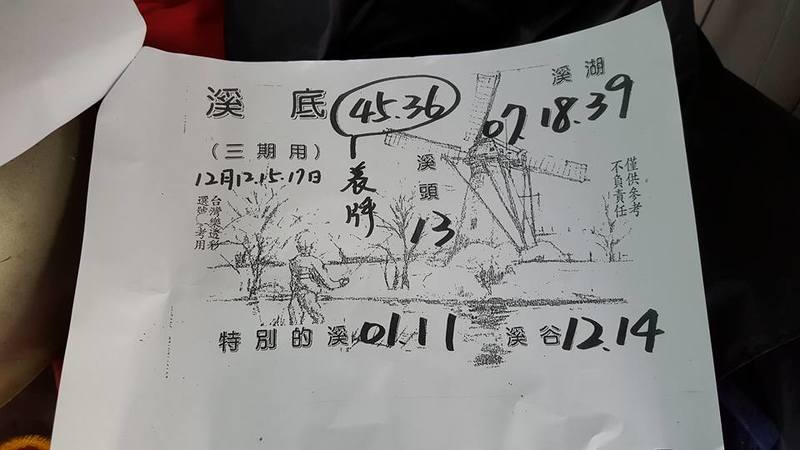 溪底 45.36
溪湖
07.18.39
(三期用)
12月12.15.17日
養牌
溪頭
13
僅供參考
不負責任
台灣樂透彩
選號參考用
特別的溪 01.11
溪谷 12.14